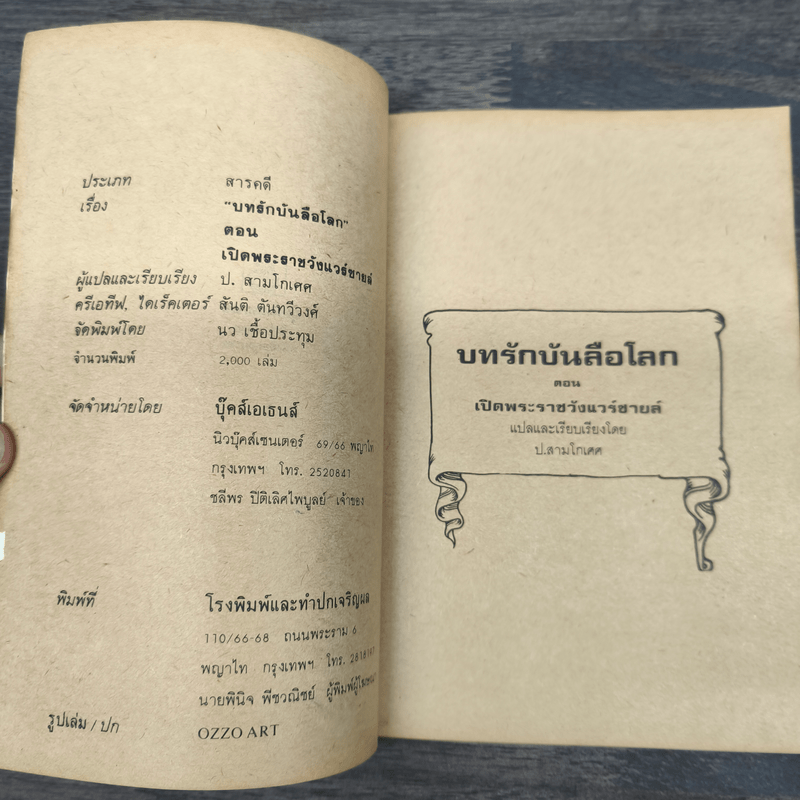 ประเภท สารคดี
เรื่อง "บทรักบันลือโลก"
ตอน
เปิดพระราชวังแวร์ซายส์
ผู้แปลและเรียบเรียง ป. สามโกเศศ
ครีเอทีฟ. ไดเร็คเตอร์ สันติ ตันทวีวงศ์
จัดพิมพ์โดย นว เชื้อประทุม
จำนวนพิมพ์ 2,000 เล่ม
จัดจำหน่ายโดย บุ๊คส์เอเธนส์
นิวบุ๊คส์เซนเตอร์ 69/66 พญาไท
กรุงเทพฯ โทร. 2520841
ชลีพร ปิติเลิศไพบูลย์ เจ้าของ
พิมพ์ที่ โรงพิมพ์และทำปกเจริญผล
110/66-68 ถนนพระราม 6
พญาไท กรุงเทพฯ โทร.
นายพินิจ พีชวณิชย์
รูปเล่ม / ปก OZZO ART
บทรักบันลือโลก
ตอน
เปิดพระราชวังแวร์ซายส์
แปลและเรียบเรียงโดย
ป.สามโกเศศ